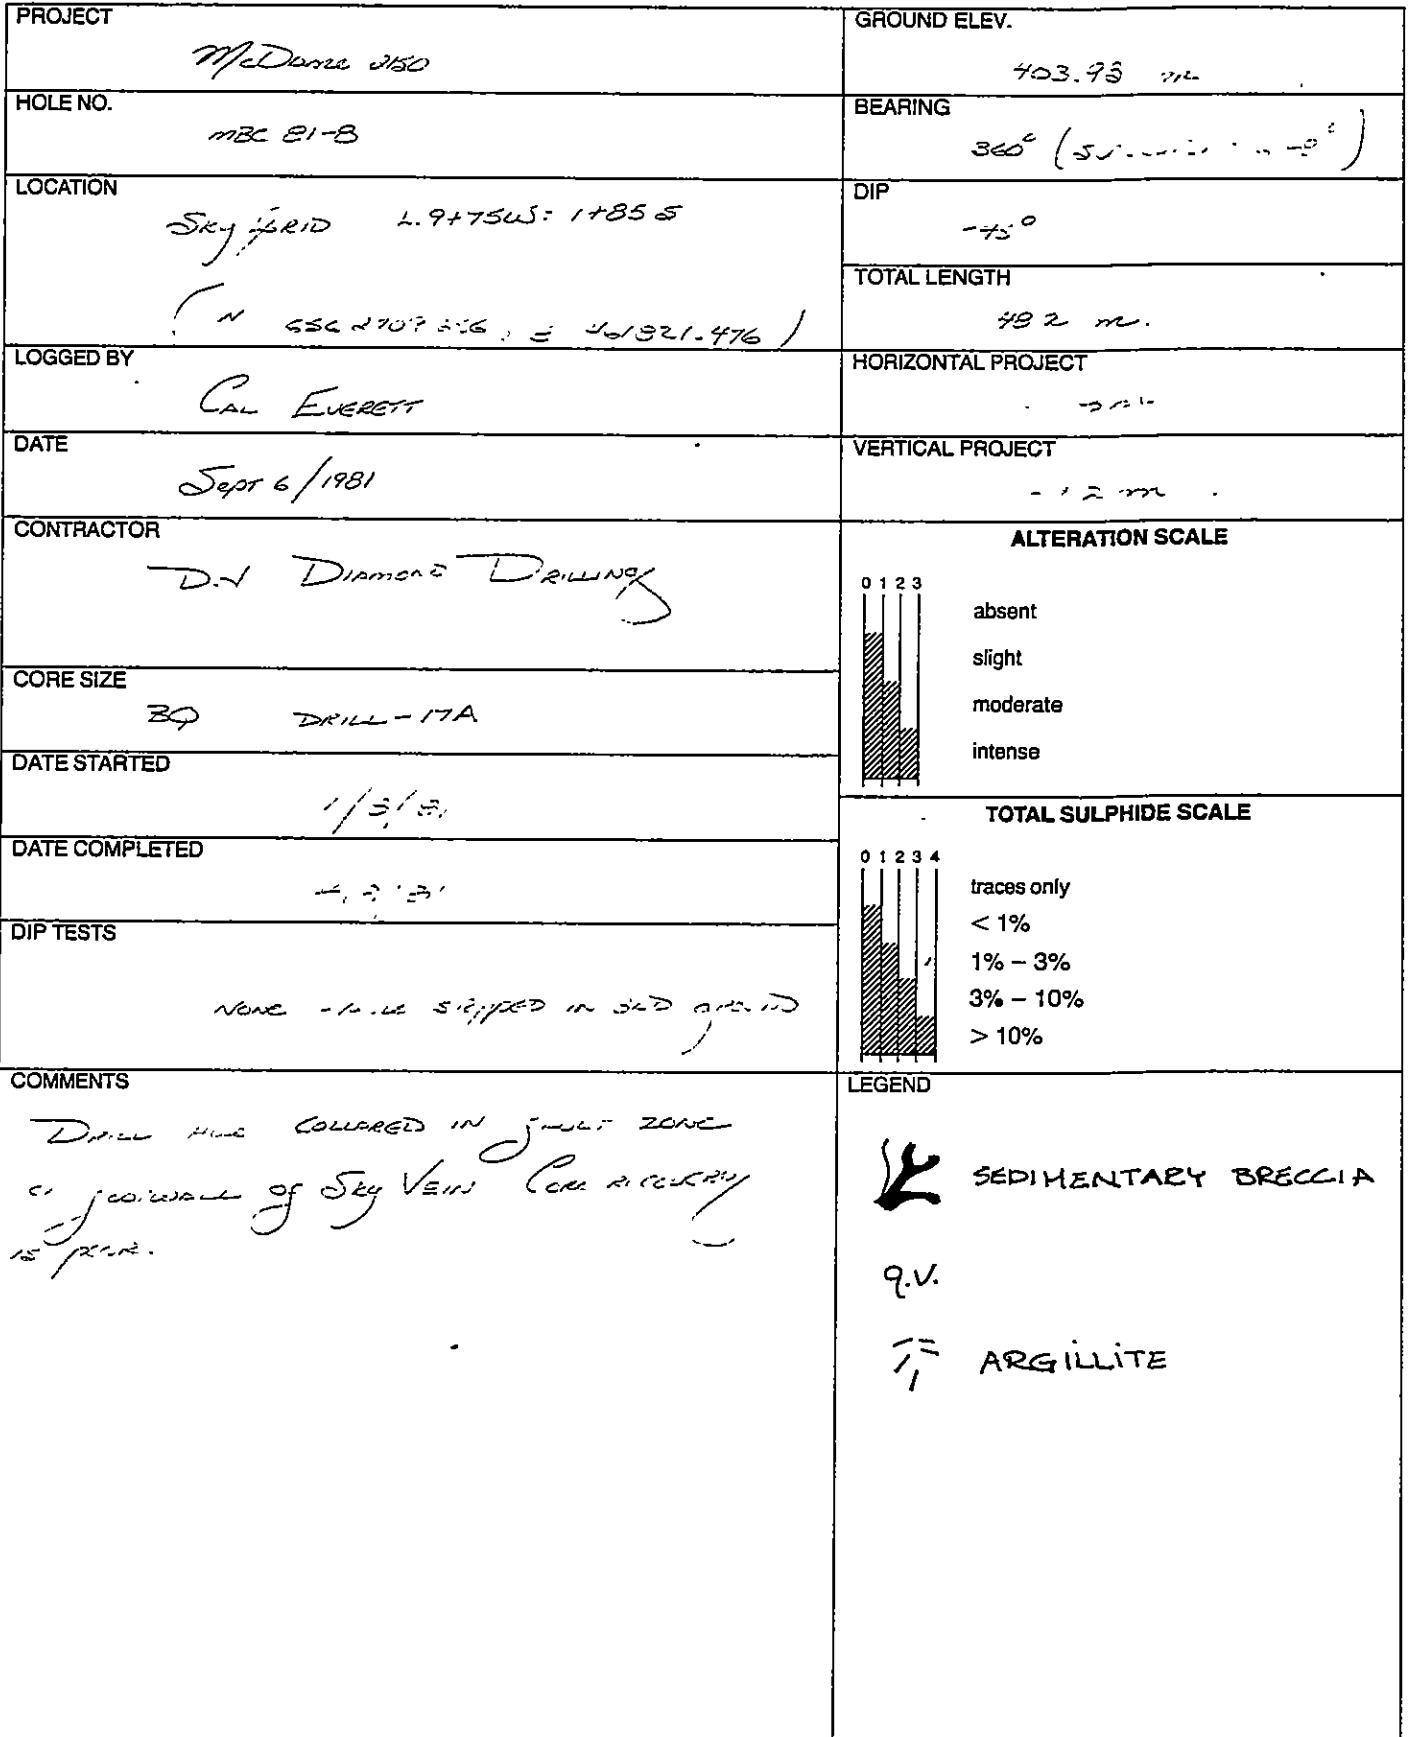 PROJECT
McDame 2150
HOLE NO.
MBC 81-8
LOCATION
Sky GRID L.9+75W: 1+85 S
(N E 461821.476)
LOGGED BY
CAL EVERETT
DATE
SEPT 6/1981
CONTRACTOR
D.J DIAMOND DRILLING
CORE SIZE
BQ DRILL-17A
DATE STARTED
DATE COMPLETED
DIP TESTS
NONE - HOLE STOPPED IN BAD GROUND
COMMENTS
DRILL HOLE COLLARED IN FAULT ZONE
footwall of Sky VEIN CORE RECOVERY
IS POOR.
GROUND ELEV.
403.93 m
BEARING
360°
DIP
-45°
TOTAL LENGTH
48.2 m.
HORIZONTAL PROJECT
VERTICAL PROJECT
m
ALTERATION SCALE
0 1 2 3
absent
slight
moderate
intense
TOTAL SULPHIDE SCALE
0 1 2 3 4
traces only
< 1%
1% – 3%
3% – 10%
> 10%
LEGEND
SEDIMENTARY BRECCIA
q.v.
ARGILLITE